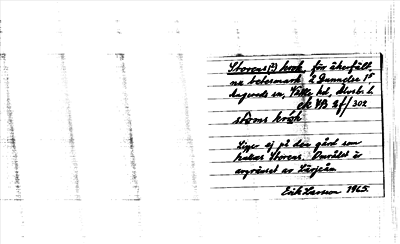 Storens(?) krok, för åkerfält,
nu betesmark å Gunnelse 1⁵
Angereds sn, Vättle hd, Älvsb. l.
ek VB 8f/302
stöns krök
Ligger ej på den gård som
kallas Storens. Området är
avgränsat av Lärjeån
Erik Larsson 1965.